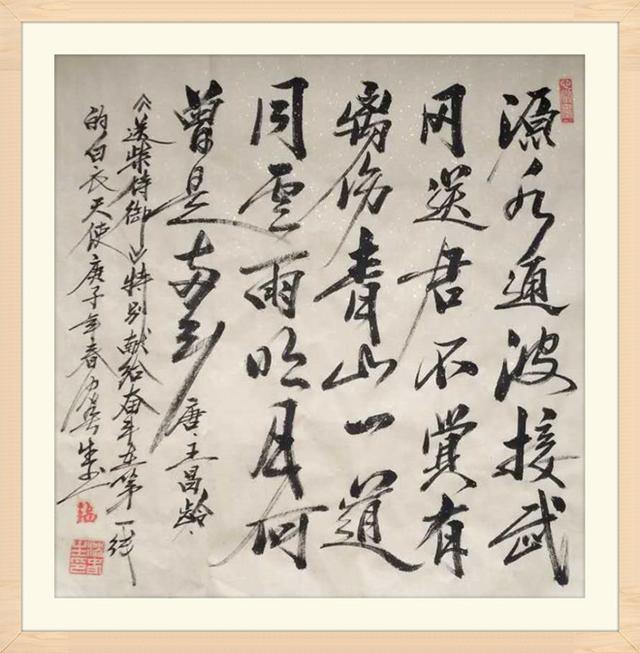 源水通波接武
冈送君不觉有
离伤青山一道
同云雨明月何
曾是两乡 唐·王昌龄·
《送柴侍御》特别献给奋斗在第一线
的白衣天使庚子年春